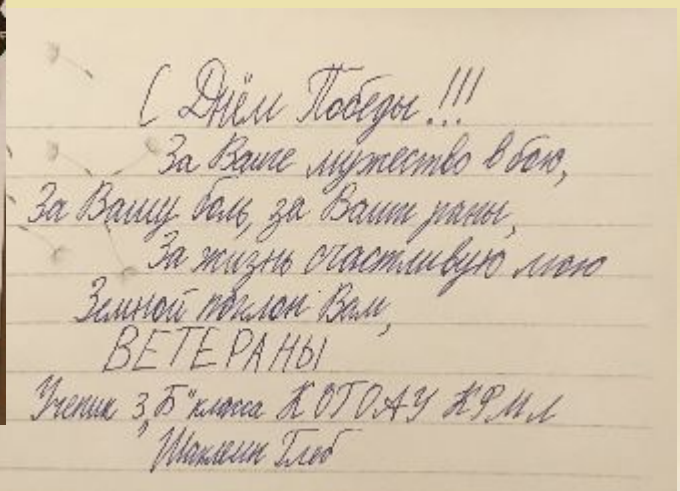 С Днём Победы!!!
За Ваше мужество в бою,
За Вашу боль, за Ваши раны,
За жизнь счастливую мою
Земной поклон Вам,
ВЕТЕРАНЫ
Ученик 3 „Б" класса КОГОАУ КФМЛ
Шаклеин Глеб